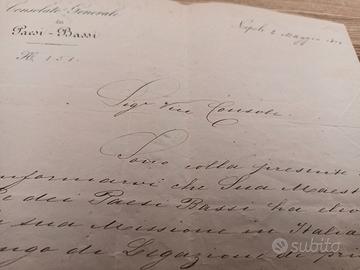 Consolato Generale
dei
Paesi-Bassi
N. 151.
Napoli 2 Maggio
Sigr Vice Console
Sono colla presente
informarvi che Sua Maes
dei Paesi Bassi ha
sua Missione in Italia
rango di Legazione di pri
subito